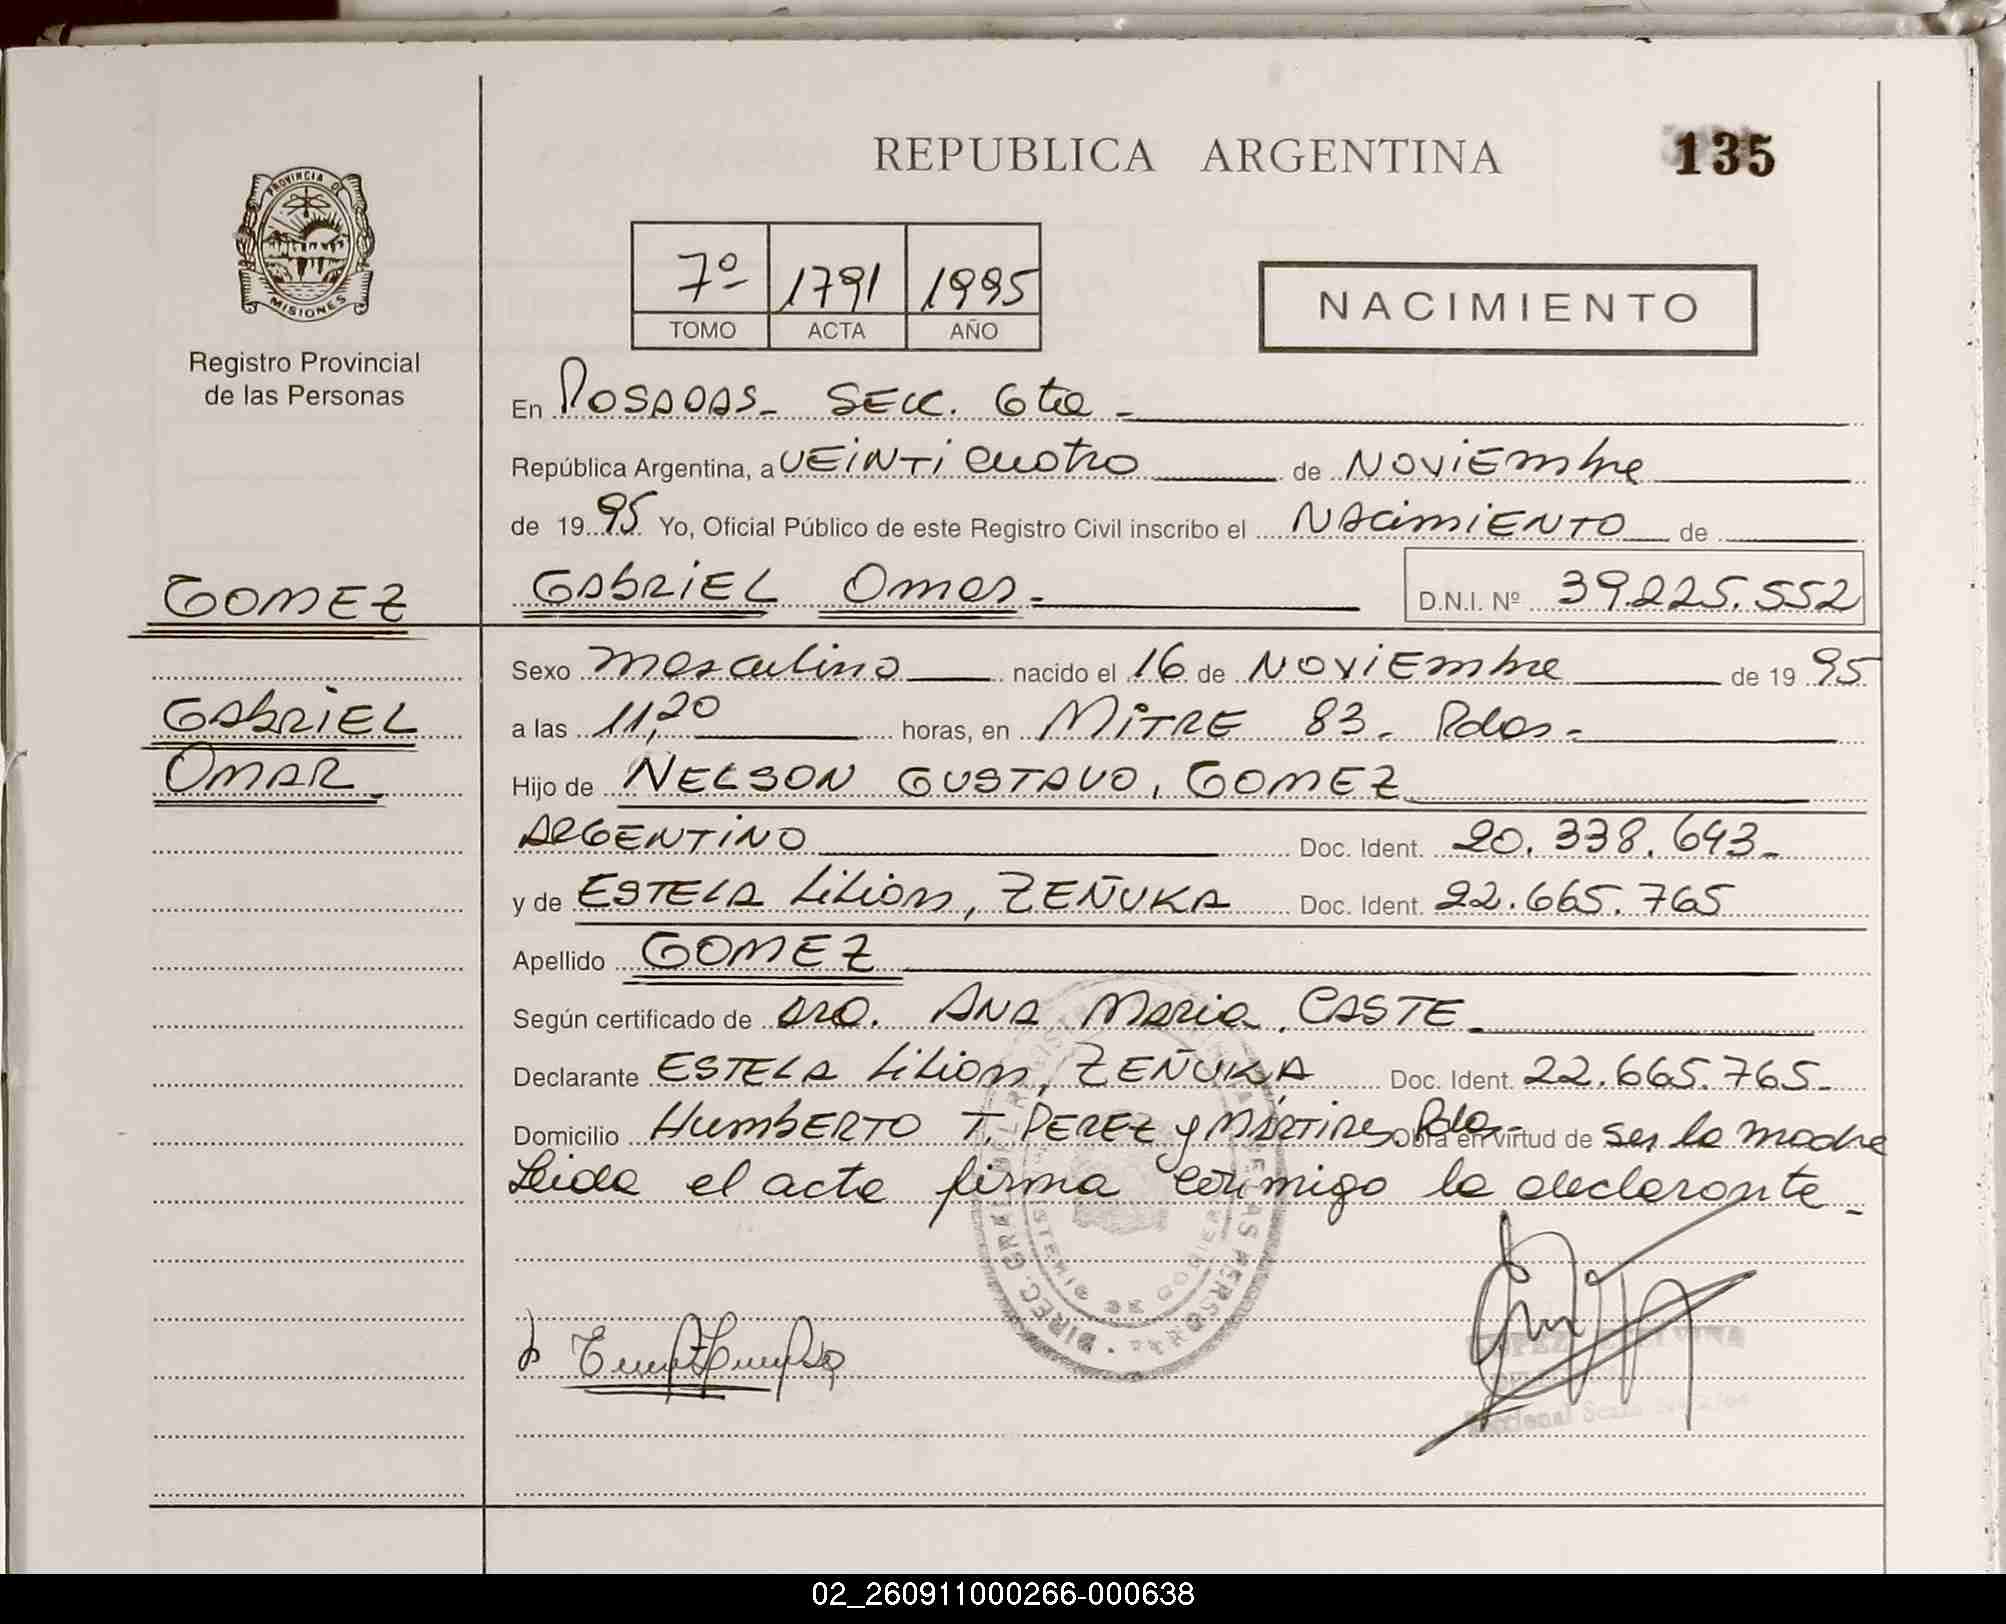 REPUBLICA ARGENTINA
135
PROVINCIA DE
MISIONES
Registro Provincial
de las Personas
7º 1791 1995
TOMO ACTA AÑO
NACIMIENTO
En POSADAS- SECC. 6ta -
República Argentina, a VEINTICUATRO de NOVIEMBRE
de 1995 Yo, Oficial Público de este Registro Civil inscribo el NACIMIENTO de
GOMEZ
GABRIEL OMAR
GABRIEL OMAR- D.N.I. Nº 39.225.552
Sexo masculino nacido el 16 de NOVIEMBRE de 1995
a las 11,20 horas, en MITRE 83- Pdas-
Hijo de NELSON GUSTAVO, GOMEZ
ARGENTINO Doc. Ident. 20.338.643-
y de ESTELA Lilian, ZEÑUKA Doc. Ident. 22.665.765
Apellido GOMEZ
Según certificado de DRA. ANA MARIA CASTE
Declarante ESTELA Lilian, ZEÑUKA Doc. Ident. 22.665.765-
Domicilio HUMBERTO T. PEREZ y MARTIRES Pdas- Obra en virtud de ser la madre
Leida el acta firma conmigo la declarante-
02_260911000266-000638